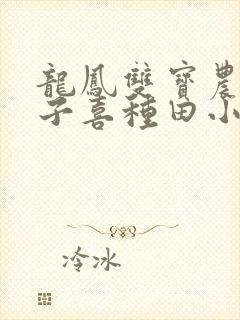 龍鳳雙寶農
子喜種田小
冷冰